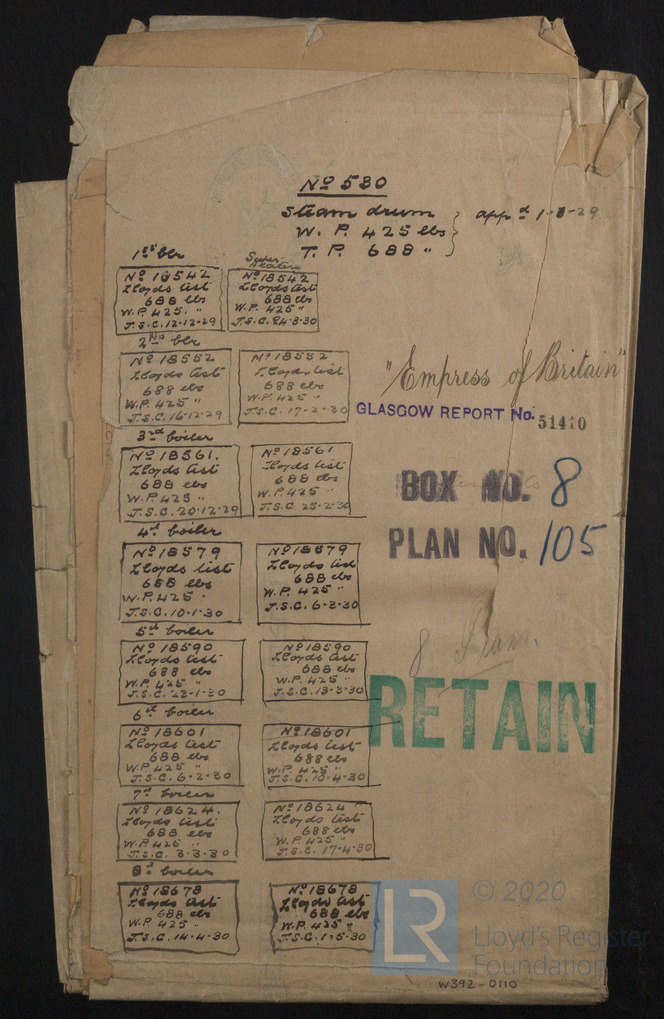 No 530
Steam drum
W. P. 425 lbs
T. P. 688 "
app'd 1-8-29.
1st blr
Super heaters
No 18542
Lloyds test
688 lbs
W.P 425. "
J.S.C. 12-12-29
No 18542
Lloyds test
688 lbs
W.P 425 "
J.S.C. 24-3-30
2nd blr
No 18552
Lloyds test
688 lbs
W.P. 425 "
J.S.C. 16-12-29
No 18552
Lloyds test
688 lbs
W.P. 425 "
J.S.C. 17-2-30
"Empress of Britain"
GLASGOW REPORT No. 51410
3rd boiler
No 18561.
Lloyds test
688 lbs
W.P. 425 "
J.S.C. 20-12-29
No 18561
Lloyds test
688 lbs
W.P. 425 "
J.S.C. 25-2-30
BOX NO. 8
PLAN NO. 105
4th boiler
No 18579
Lloyds test
688 lbs
W.P. 425 "
J.S.C. 10-1-30
No 18579
Lloyds test
688 lbs
W.P. 425 "
J.S.C. 6-3-30
5th boiler
No 18590
Lloyds test
688 lbs
W.P. 425 "
J.S.C. 23-1-30
No 18590
Lloyds test
688 lbs
W.P. 425 "
J.S.C. 13-3-30
8
RETAIN
6th boiler
No 18601
Lloyds test
688 lbs
W.P. 425 "
J.S.C. 6-2-30
No 18601
Lloyds test
688 lbs
W.P. 425 "
J.S.C. 10-4-30
7th boiler
No 18624.
Lloyds test
688 lbs
W.P. 425 "
J.S.C. 3-3-30
No 18624
Lloyds test
688 lbs
W.P. 425 "
J.S.C. 17-4-30
8th boiler
No 18678
Lloyds test
688 lbs
W.P. 425 "
J.S.C. 14-4-30
No 18678
Lloyds test
688 lbs
W.P. 425 "
J.S.C. 1-5-30
LR
© 2020
Lloyd's Register
Foundation
W392-0110